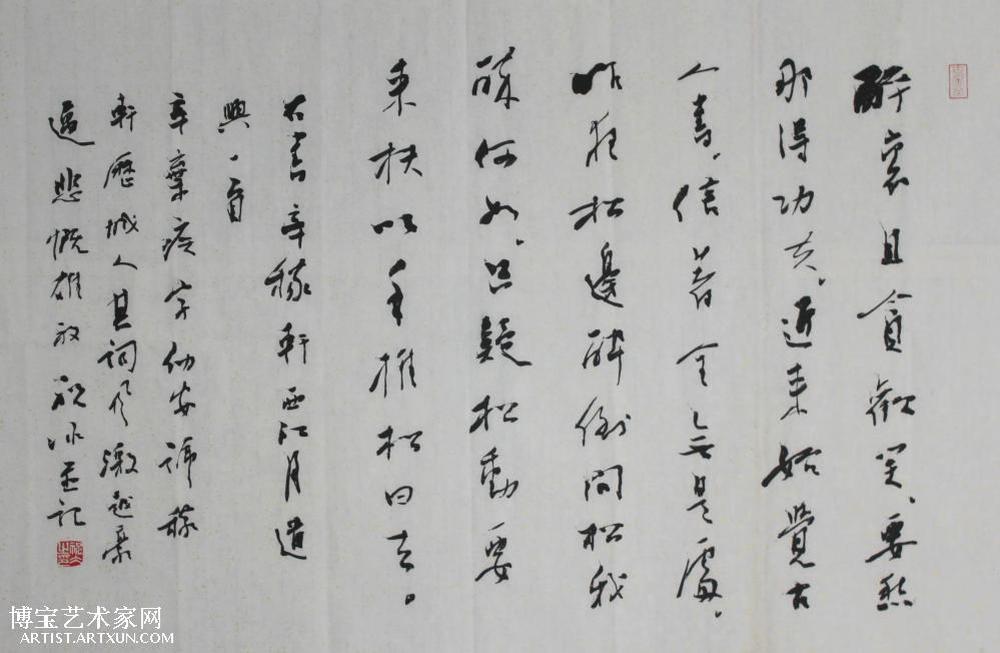 醉裏且貪歡笑、要愁
那得功夫。近来始覺古
人書、信著全無是處。
昨夜松邊醉倒問松我
醉何如、只疑松動要
来扶以手推松曰去。
右書辛稼軒西江月遣
興一首
辛棄疾字幼安號稼
軒歷城人其詞風激越豪
邁悲慨雄放
并記
博宝艺术家网
ARTIST.ARTXUN.COM